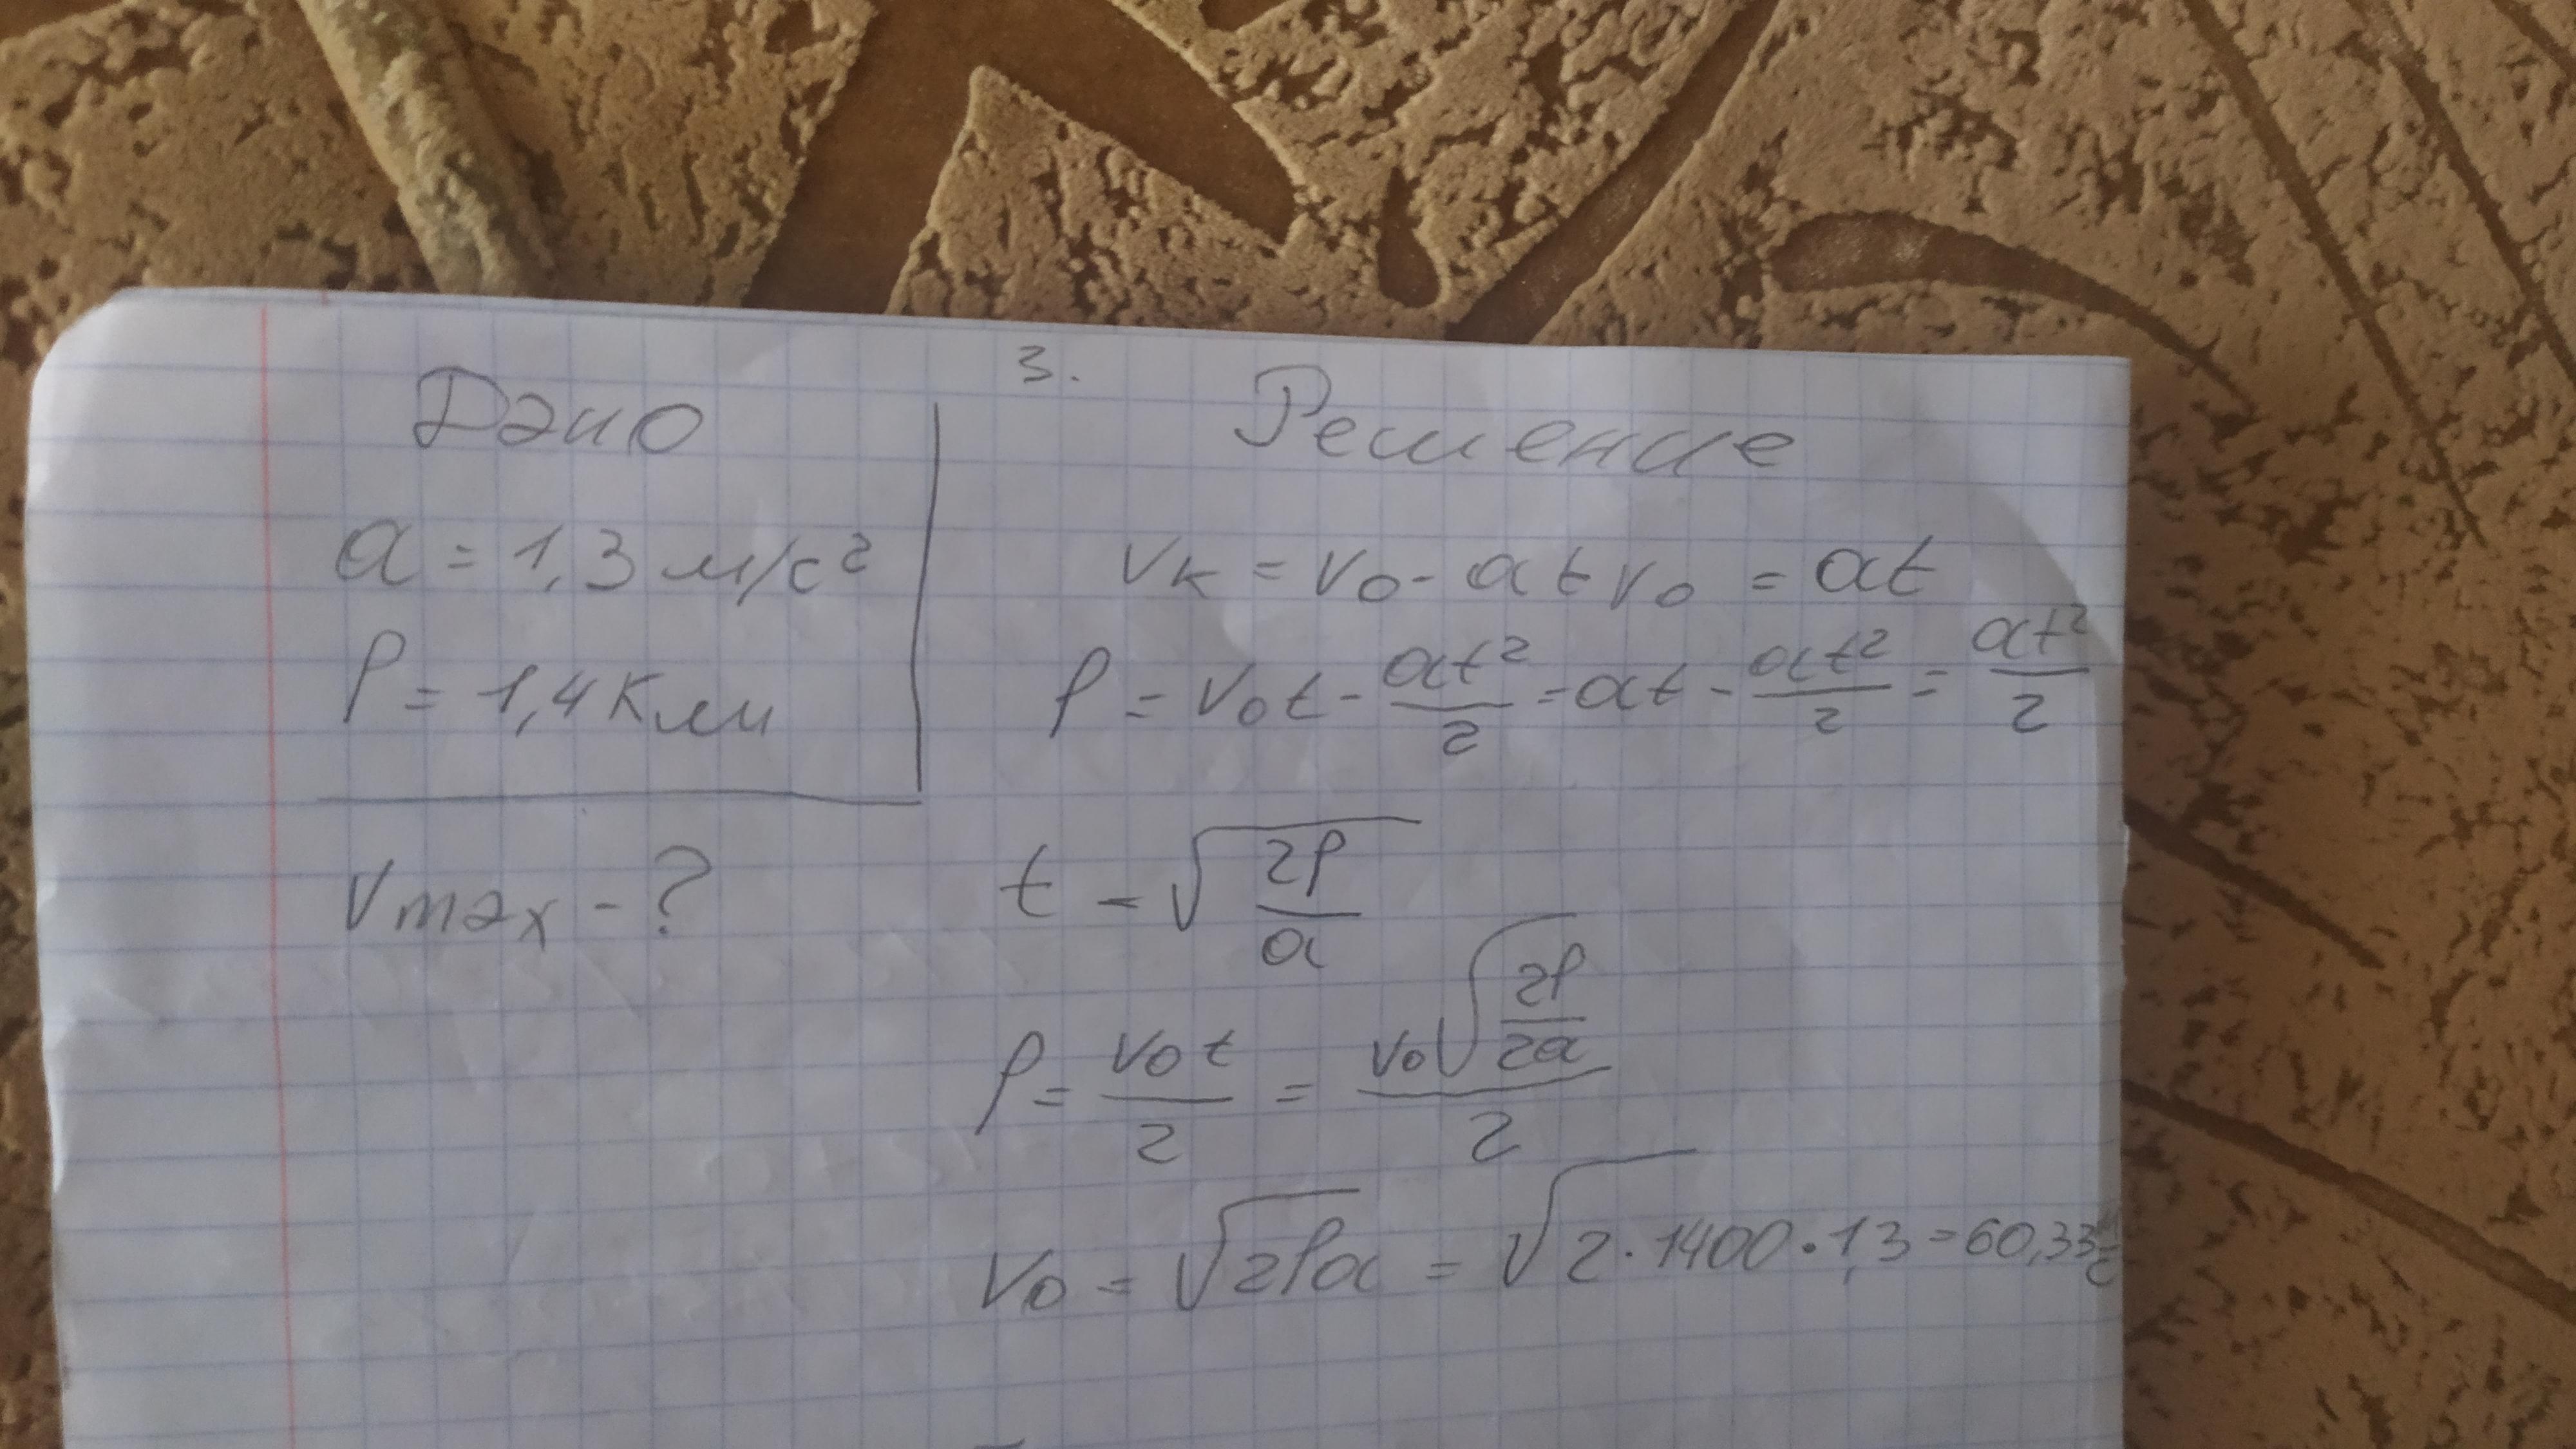 3.
Дано
a = 1,3 м/с²
ρ = 1,4 Км
Vmax - ?
Решение
Vк = V₀ - at V₀ = at
ρ = V₀t - at²/2 = at - at²/2 = at²/2
t = √(2ρ/a)
ρ = V₀t/2 = V₀√(2ρ/2a)/2
V₀ = √2ρa = √2·1400·1,3 = 60,33 м/с